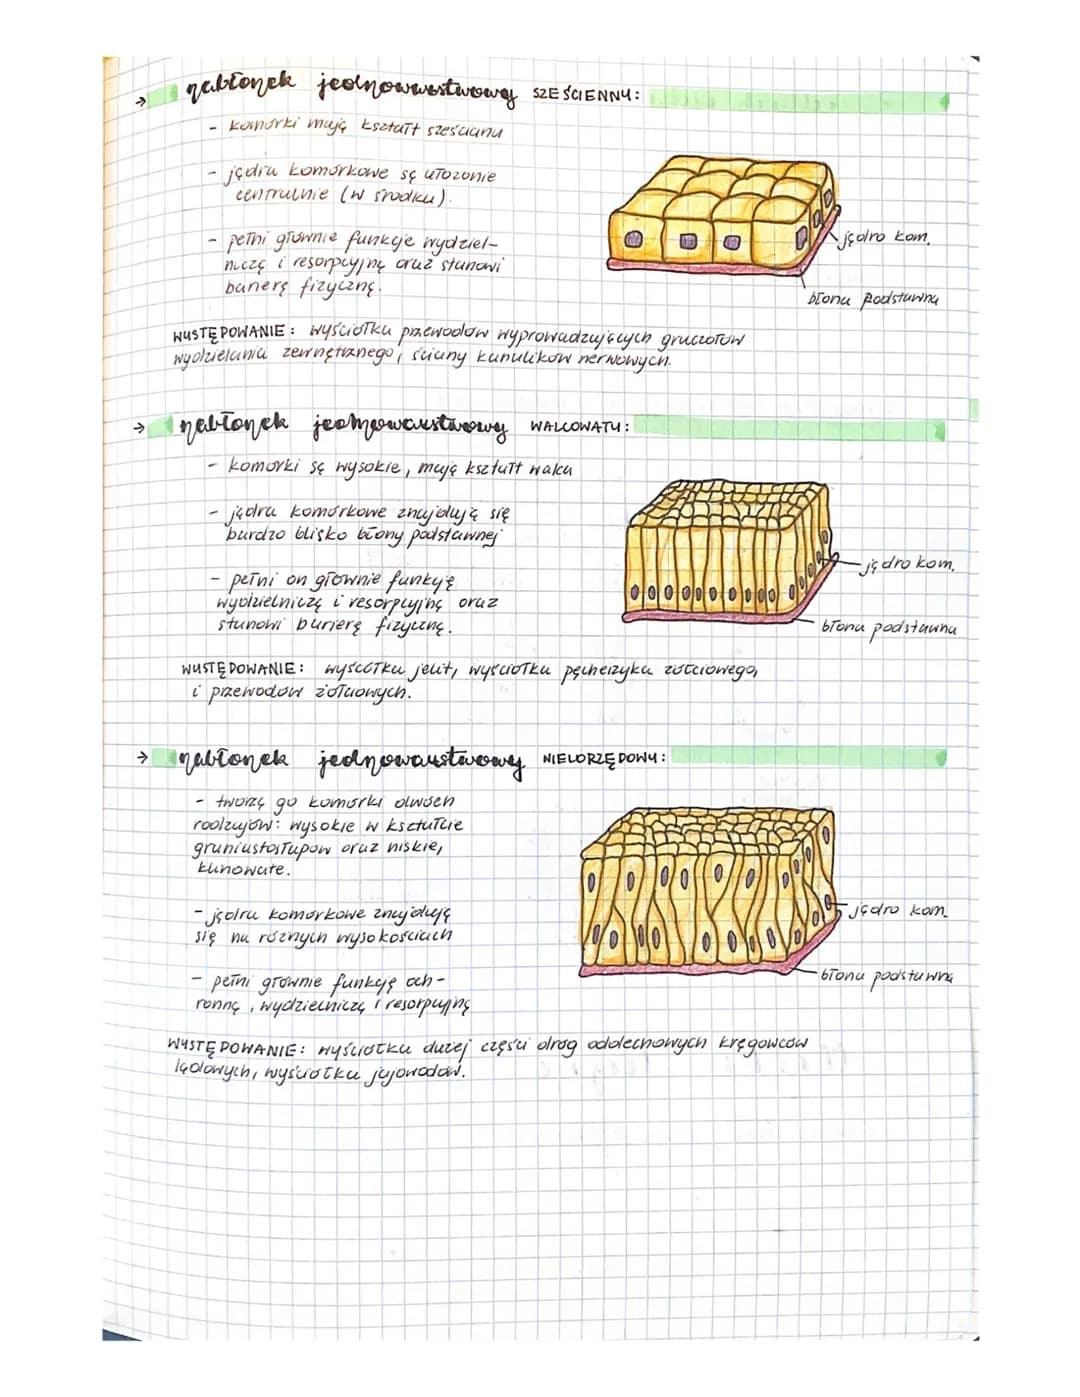 → nabłonek jednowarstwowy SZEŚCIENNY:
- komórki mają kształt sześcianu
- jądra komórkowe są ułożonie
centralnie (w środku).
jądro kom.
- pełni głównie funkcje wydziel-
niczą i resorpcyjną oraz stanowi
barierę fizyczną.
błona podstawna
WYSTĘPOWANIE: wyściółka przewodów wyprowadzających gruczołów
wydzielania zewnętrznego, ściany kanalików nerwowych.
→ nabłonek jednowarstwowy WALCOWATY:
- komórki są wysokie, mają kształt walca
- jądra komórkowe znajdują się
bardzo blisko błony podstawnej
jądro kom.
- pełni on głównie funkcję
wydzielniczą i resorpcyjną oraz
stanowi barierę fizyczną.
błona podstawna
WYSTĘPOWANIE: wyścółka jelit, wyściółka pęcherzyka żółciowego,
i przewodów żółciowych.
→ nabłonek jednowarstwowy WIELORZĘDOWY:
- tworzą go komórki dwóch
rodzajów: wysokie w kształcie
graniastosłupów oraz niskie,
klinowate.
- jądra komórkowe znajdują
się na różnych wysokościach
jądro kom.
- pełni głównie funkcję och-
ronną, wydzielniczą i resorpcyjną
błona podstawna
WYSTĘPOWANIE: wyściółka dużej części dróg oddechowych kręgowców
lądowych, wyściółka jajowodów.